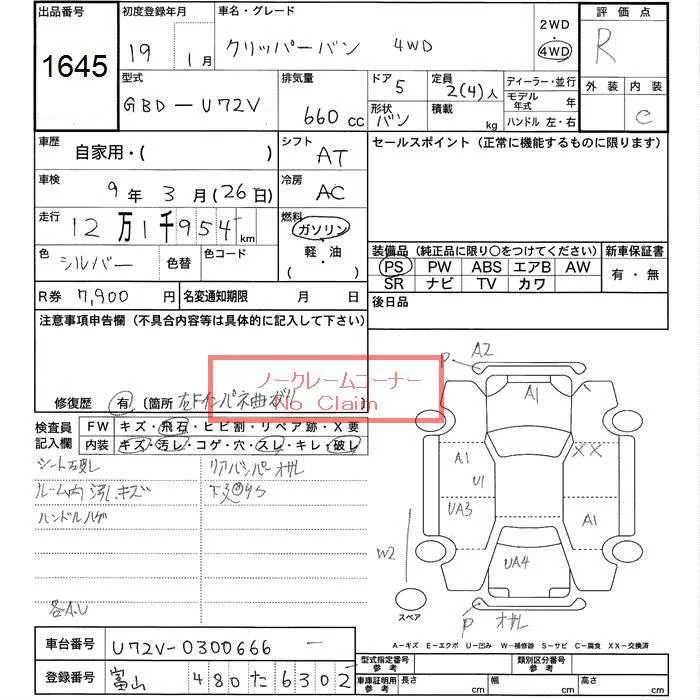 出品番号
1645
初度登録年月
19 1月
車名・グレード
クリッパーバン 4WD
2WD
4WD
評価点
R
外装 内装
C
型式
GBD-U72V
排気量
660 cc
ドア 5
形状 バン
定員 2(4)人
積載 kg
ディーラー・並行
モデル年式 年
ハンドル 左・右
車歴
自家用・( )
シフト
AT
セールスポイント (正常に機能するものに限ります)
車検
9年3月(26日)
冷房
AC
走行
12万1千954km
燃料
ガソリン
軽・油
( )
色
シルバー
色替
色コード
装備品(純正品に限り〇をつけてください)
PS PW ABS エアB AW
SR ナビ TV カワ
新車保証書
有・無
R券 7,900 円
名変通知期限 月 日
後日品
注意事項申告欄 (不具合内容等は具体的に記入して下さい)
ノークレームコーナー
No Claim
修復歴 有 〔箇所 左Fインパネ曲ガリ
検査員記入欄
FW キズ・飛石・ヒビ割・リペア跡・X要
内装 キズ・汚レ・コゲ・穴・スレ・キレ・破レ
シート破レ
ルーム内 汚レ キズ
ハンドルハゲ
各A.U
リアバンパー オサレ
下廻サビ
P A2
A1
A1
XX
U1
UA3
A1
W2
UA4
スペア
P オサレ
A-キズ E-エクボ U-凹み W-補修跡 S-サビ C-腐食 XX-交換済
車台番号 U72V-0300666 -
登録番号 富山 480 た 6302
型式指定番号 参考
類別区分番号 参考
車庫証明用 参考
長さ cm
幅 cm
高さ cm